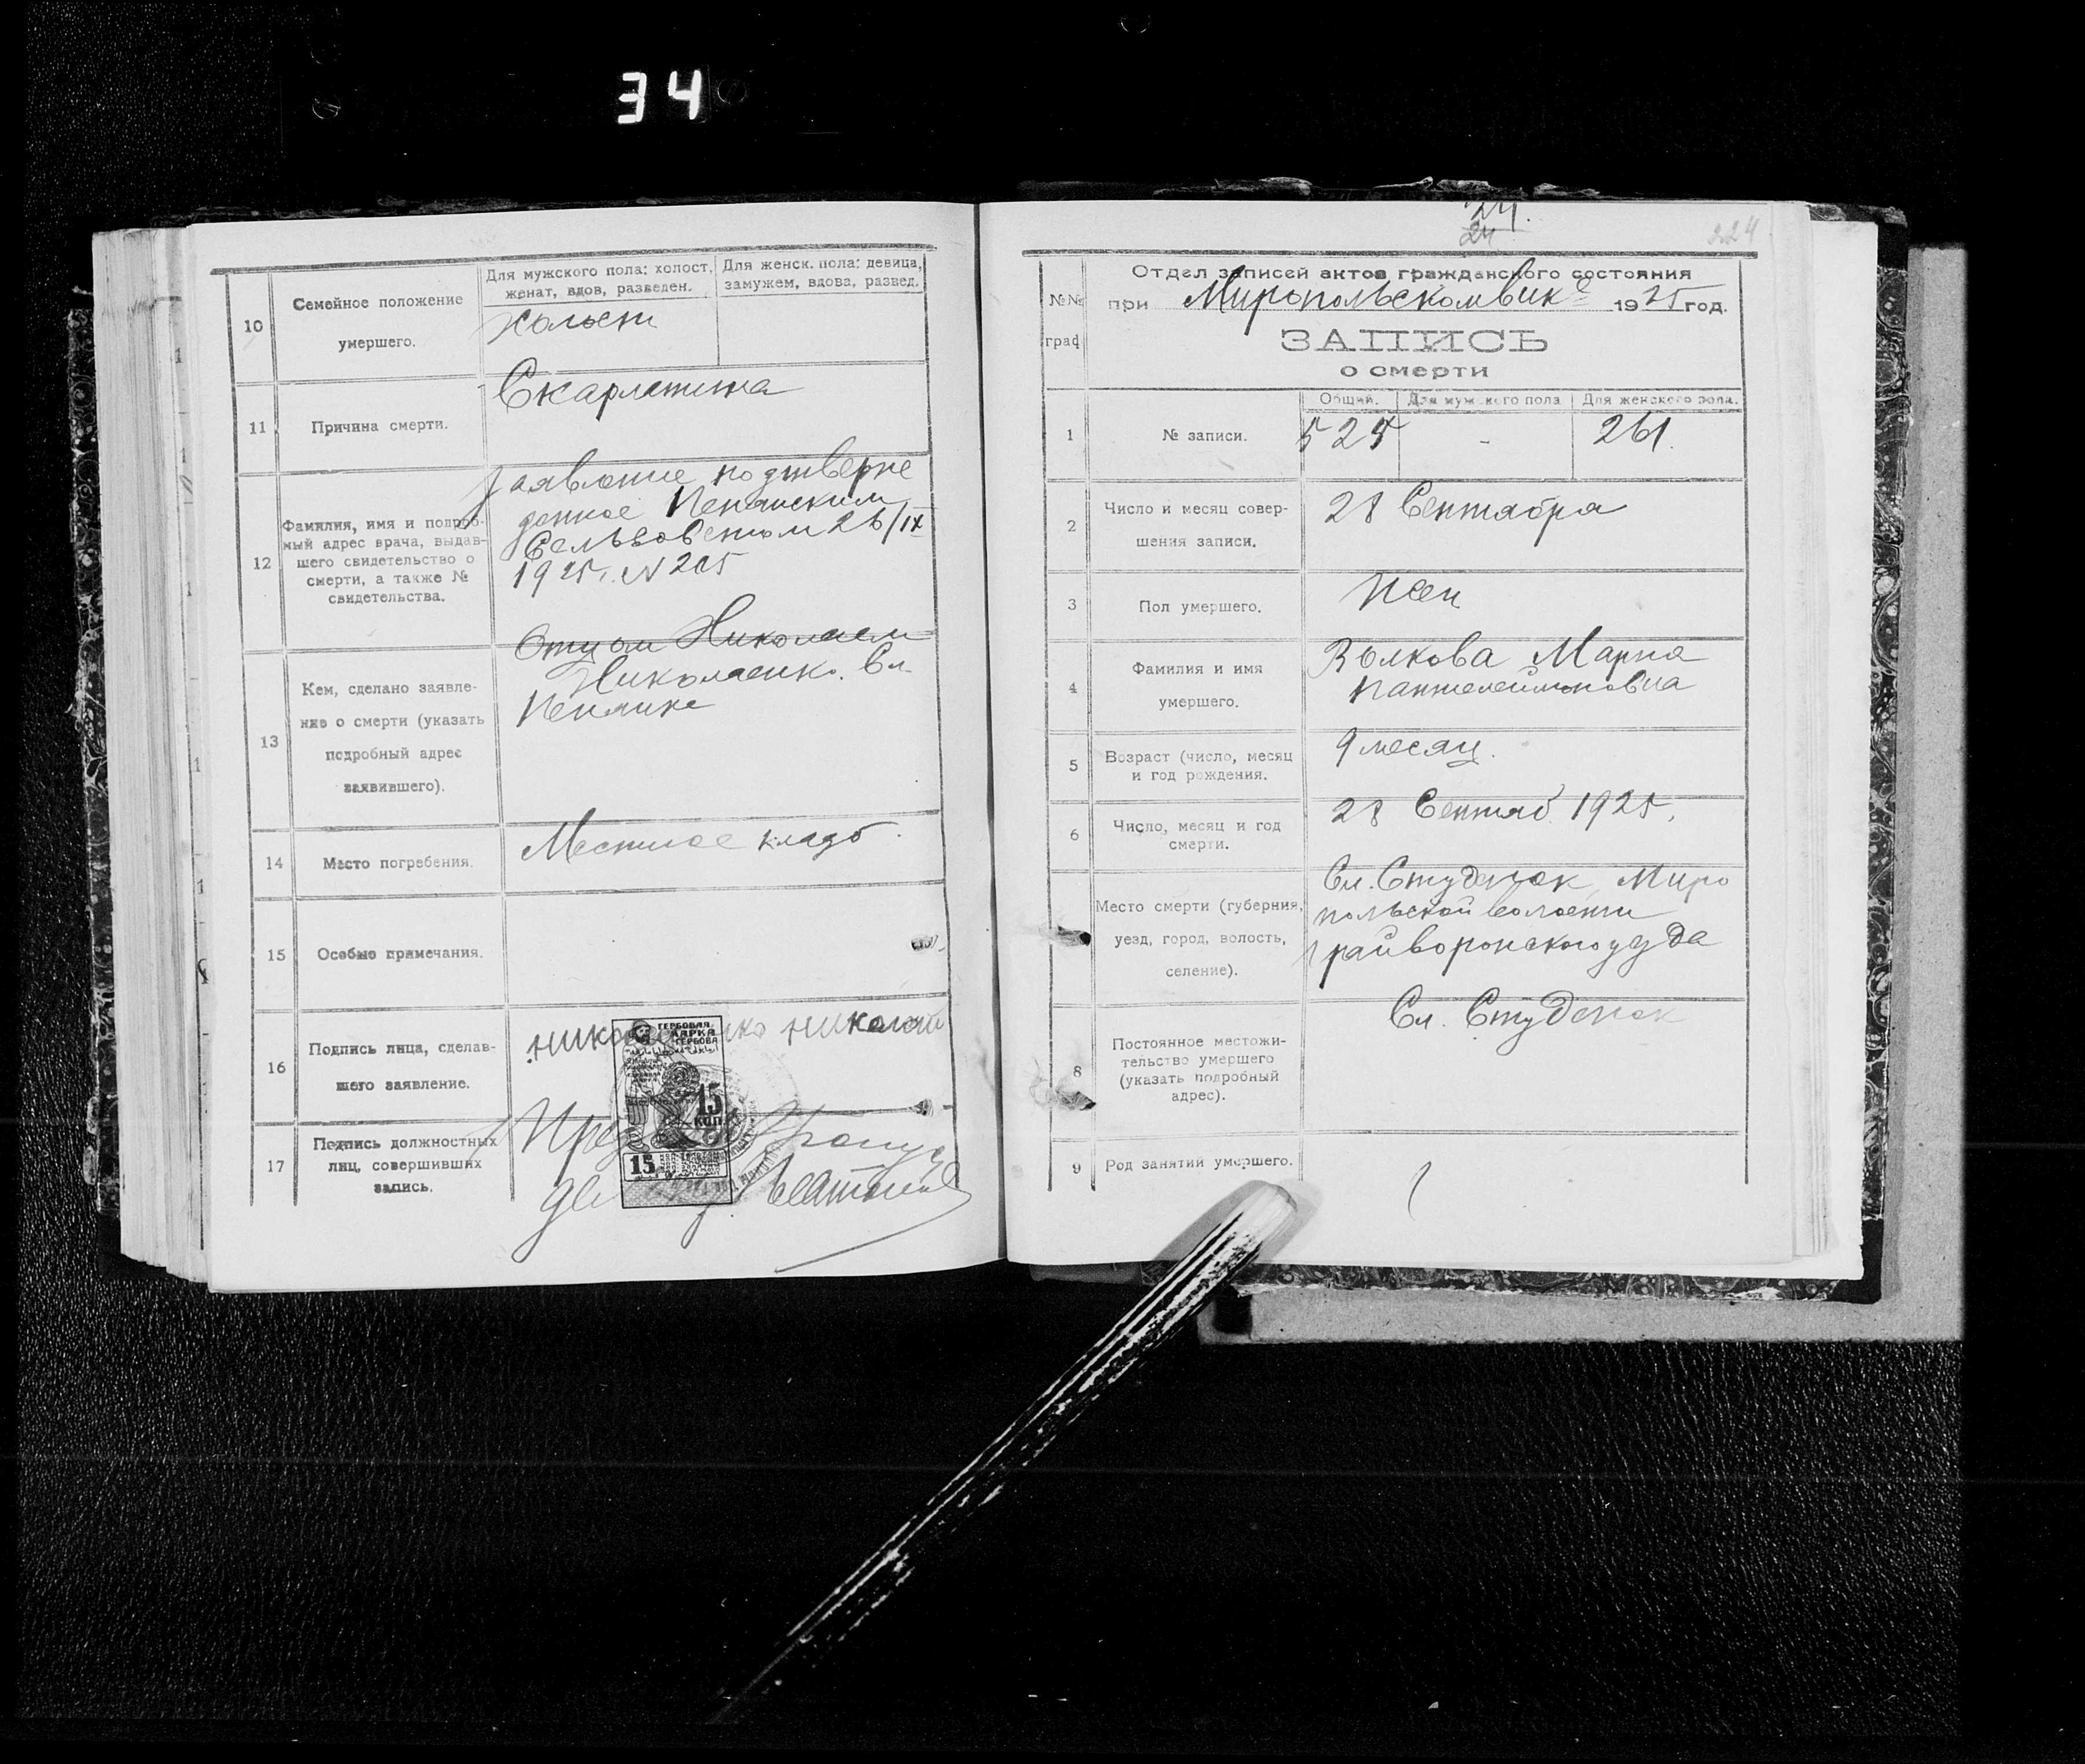 34
10
Семейное положение
умершего.
Для мужского пола: холост,
женат, вдов, разведен.
Для женск. пола: девица,
замужем, вдова, развед.
Холост
11
Причина смерти.
Скарлатина
12
Фамилия, имя и подроб-
ный адрес врача, выдав-
шего свидетельство о
смерти, а также №
свидетельства.
Заявление подтверж
денное Пенянским
Сельсоветом 26/IX
1925г. N 205
13
Кем, сделано заявле-
ние о смерти (указать
подробный адрес
заявившего).
Отцом Николаем
Николаенко. Сл.
Пенянка
14
Место погребения.
Местное кладб.
15
Особые примечания.
16
Подпись лица, сделав-
шего заявление.
Николаенко Николай
ГЕРБОВАЯ
МАРКА
15
КОП
15
17
Подпись должностных
лиц, совершивших
запись.
24.
24
224
№№
граф
Отдел записей актов гражданского состояния
при Миропольском вике 1925 год.
ЗАПИСЬ
о смерти
1
№ записи.
Общий.
Для мужского пола
Для женского пола.
525
-
261.
2
Число и месяц совер-
шения записи.
28 Сентября
3
Пол умершего.
Жен
4
Фамилия и имя
умершего.
Волкова Мария
Пантелеймоновна
5
Возраст (число, месяц
и год рождения.
9 месяц.
6
Число, месяц и год
смерти.
28 Сентяб 1925.
Место смерти (губерния,
уезд, город, волость,
селение).
Сл. Студенок, Миро
польской волости
Грайворонского уезда
8
Постоянное местожи-
тельство умершего
(указать подробный
адрес).
Сл. Студенок
9
Род занятий умершего.